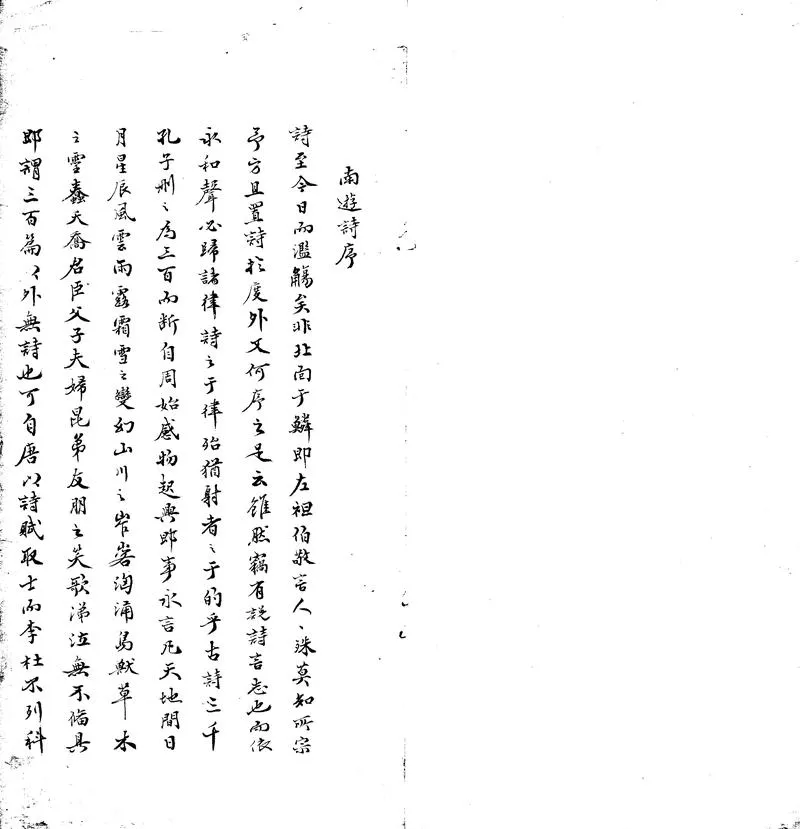 南遊詩序
詩至今日而濫觴矣非北面于鱗即左袒伯敬言人人殊莫知所宗
予方且置詩於度外又何序之足云雖然竊有説詩言志也而依
永和聲必歸諸律詩之于律殆猶射者之于的乎古詩三千
孔子刪之為三百而断自周始感物起興即事永言凡天地間日
月星辰風雲雨露霜雪之變幻山川之岝峉洶涌鳥獸草木
之靈蠢夭喬君臣父子夫婦昆弟友朋之笑歌涕泣無不備具
即謂三百篇以外無詩也可自唐以詩賦取士而李杜不列科